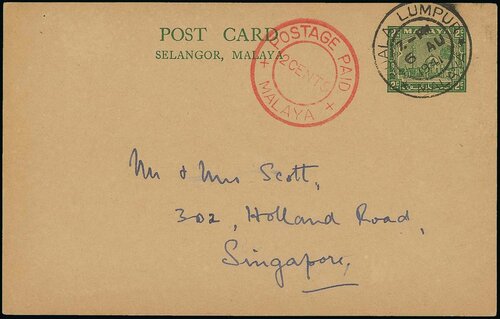 POST CARD
SELANGOR, MALAYA.
POSTAGE PAID
2 CENTS
MALAYA
KUALA LUMPUR
6 AU
Mr & Mrs Scott,
302, Holland Road,
Singapore,